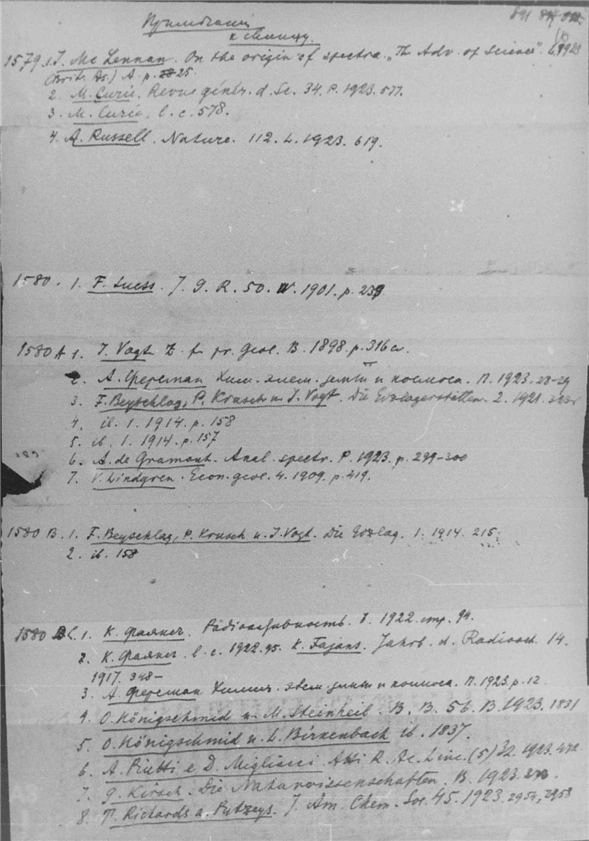 Примѣчанія
к свинцу.
1579. 1. J. Mc Lennan. On the origin of spectra. "The Adv. of Science". L. 1923
(Brit. As.) A p. 25.
2. M. Curie. Revue génér. d. Sc. 34. P. 1923. 577.
3. M. Curie. l. c. 578.
4. A. Russell. Nature. 112. L. 1923. 619.
1580. 1. F. Suess. J. g. R. 50. W. 1901. p. 239
1580 A 1. J. Vogt. Z. f. pr. Geol. B. 1898. p. 316
2. А. Ферсман Хим. элем. земли и космоса. П. 1923. 28-29
3. F. Beyschlag, P. Krusch u. J. Vogt. Die Erzlagerstätten. 2. 1921.
4. ib. 1. 1914. p. 158
5. ib. 1. 1914. p. 157
6. A. de Gramont. Anal. spectr. P. 1923. p. 299-300
7. V. Lindgren. Econ. geol. 4. 1909. p. 419.
1580 B. 1. F. Beyschlag, P. Krusch u. J. Vogt. Die Erzlag. 1. 1914. 215.
2. ib. 158
1580 C. 1. К. Фаянс. Радіоактивность. 1922. стр. 94.
2. К. Фаянс. l. c. 1922. 95. K. Fajans. Jahrb. d. Radioact. 14.
1917. 348-
3. А. Ферсман Химич. элем. земли и космоса. П. 1923. p. 12.
4. O. Hönigschmid u. M. Steinheil. B. B. 56. B. 1923. 1831
5. O. Hönigschmid u. L. Birkenbach ib. 1837.
6. A. Piutti e D. Migliacci Atti R. Ac. Linc. (5) 32. 1923.
7. G. Kirsch. Die Naturwissenschaften. B. 1923.
8. T. Richards a. Putzeys. J. Am. Chem. Soc. 45. 1923. 2954, 2958